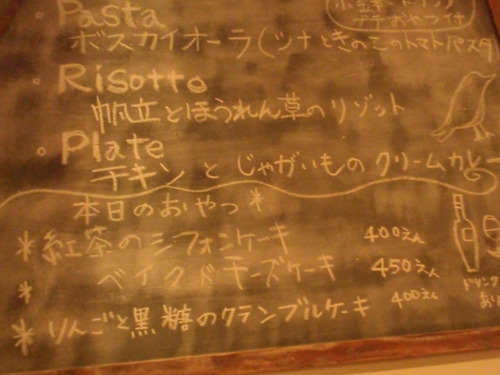 Pasta
プチおやつ付
ボスカイオーラ(ツナときのこのトマトパスタ
Risotto
帆立とほうれん草のリゾット
Plate
チキンとじゃがいものクリームカレー
本日のおやつ*
*紅茶のシフォンケーキ 400えん
*ベイクドチーズケーキ 450えん
*りんごと黒糖のクランブルケーキ 400えん
ドリンク